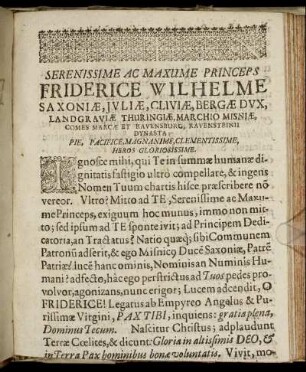 SERENISSIME AC MAXUME PRINCEPS
FRIDERICE WILHELME
SAXONIÆ, JVLIÆ, CLIVIÆ, BERGÆ DVX,
LANDGRAVIÆ THURINGIÆ, MARCHIO MISNIÆ,
COMES MARCÆ ET RAVENSBURG, RAVENSTEINII
DYNASTA,
PIE, PACIFICE, MAGNANIME, CLEMENTISSIME,
HEROS GLORIOSISSIME.
Ignosce mihi, qui Te in summæ humanæ di-
gnitatis fastigio ultro compellare, & ingens
Nomen Tuum chartis hisce præscribere nō
vereor. Vltro? Mitto ad TE, Serenissime ac Maxu-
me Princeps, exiguum hoc munus, immo non mit-
to; sed ipsum ad TE sponte ivit; ad Principem Dedi-
catoria, an Tractatus? Natio quæq; sibi Communem
Patronū adserit, & ego Misnico Ducē Saxoniæ, Patrē
Patriæ! lucē hanc ominis, Nominis an Numinis Hu-
mani? adfecto, hac ego perstrictus ad Tuos pedes pro-
volvor, agonizans, nunc erigor; Lucem adcendit, O
FRIDERICE! Legatus ab Empyreo Angelus & Pu-
rissimæ Virgini, PAX TIBI, inquiens: gratiæ plena,
Dominus Tecum. Nascitur Christus; adplaudunt
Terræ Cœlites, & dicunt: Gloria in altissimis DEO, &
in Terra Pax hominibus bonæ voluntatis. Vivit, mo-